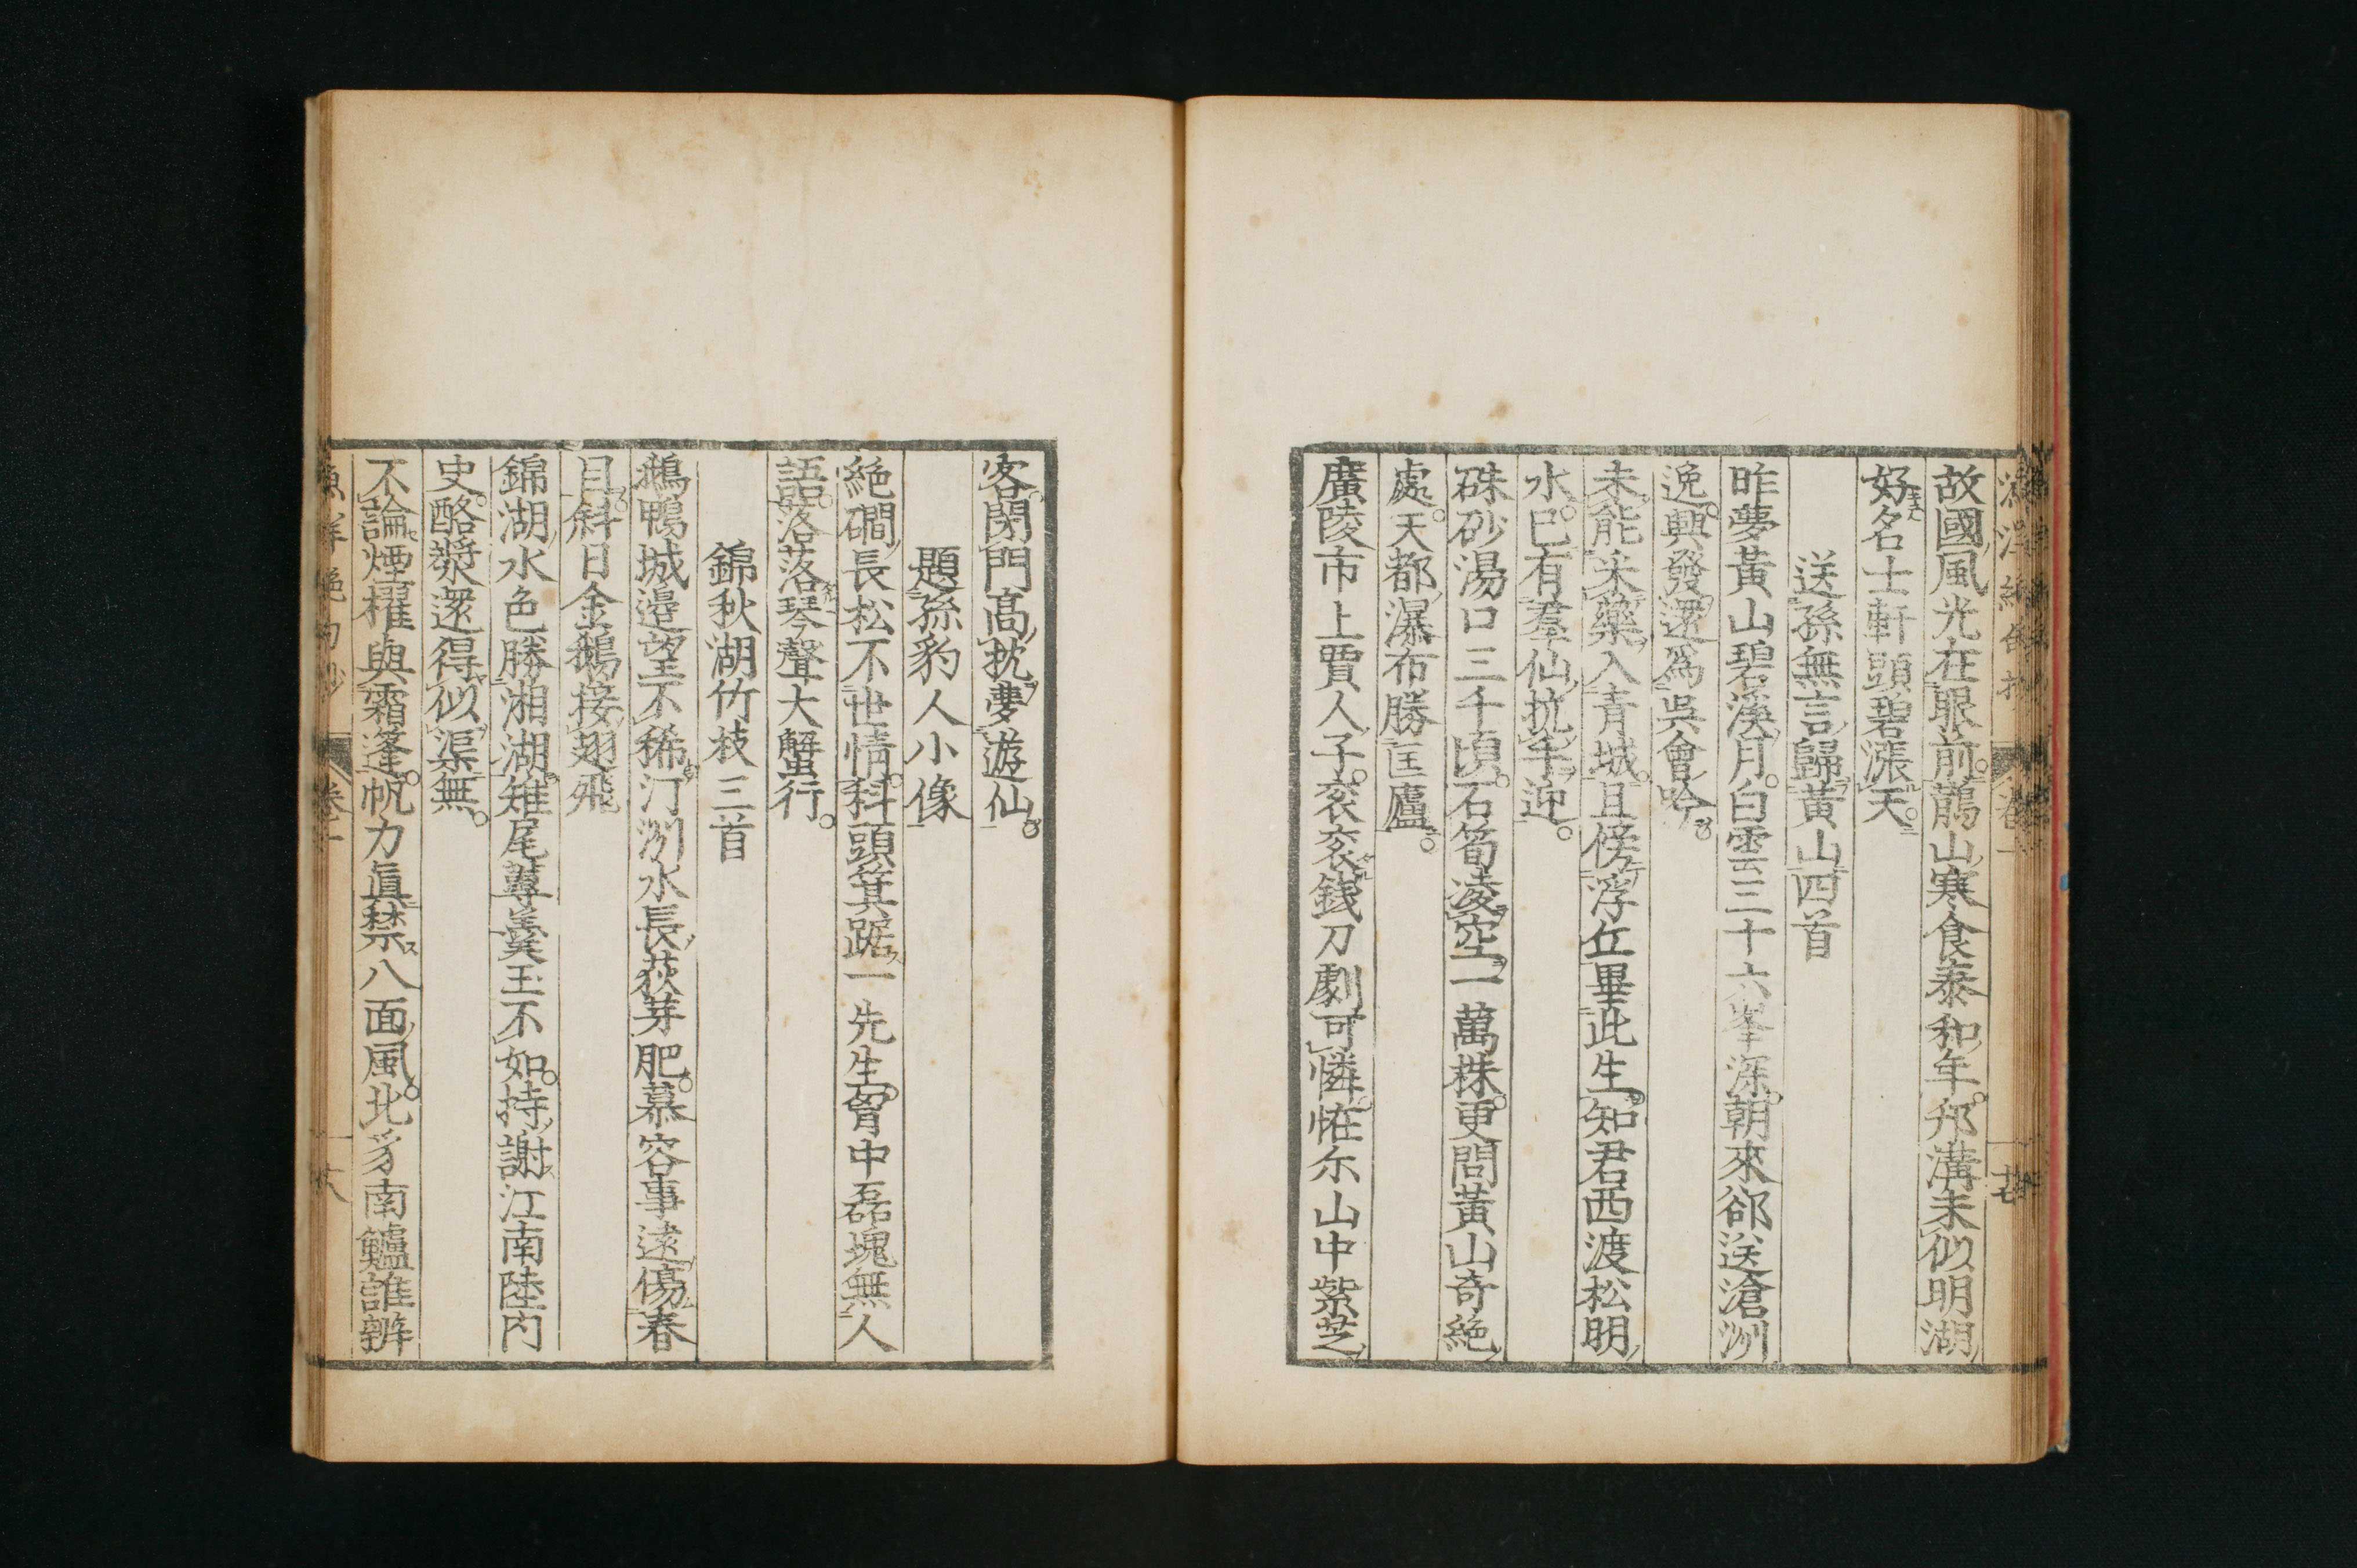 故國風光在眼前。鵲山寒食泰和年。邗溝未似明湖
好。名士軒頭碧漲天。
送孫無言歸黃山四首
昨夢黃山碧溪月。白雲三十六峯深。朝來郤送滄洲
逸。興發還爲吳會吟。
未能采藥入青城。且傍浮丘畢此生。知君西渡松明
水。已有羣仙抗手迎。
硃砂湯口三千頃。石筍凌空一萬株。更問黃山奇絶
處。天都瀑布勝匡廬。
廣陵市上賈人子。衮衮錢刀劇可憐。怪尓山中紫芝
客。閉門高枕夢遊仙。
題孫豹人小像
絶磵長松不世情。科頭箕踞一先生。胷中磊塊無人
語。落落琴聲大蟹行。
錦秋湖竹枝三首
鵝鴨城邉望不稀。汀洲水長荻芽肥。慕容事逺傷春
目。斜日金鵝接翅飛
錦湖水色勝湘湖。雉尾蓴羹玉不如。持謝江南陸内
史。酪漿還得似渠無。
不論煙櫂與霜篷。帆力眞禁八面風。北豸南鱸誰辨
卷一